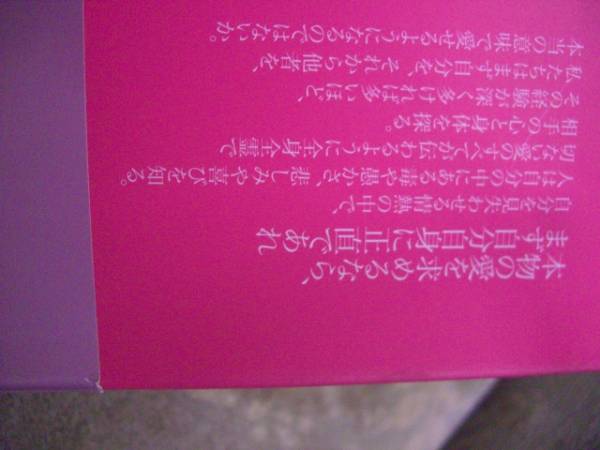 本物の愛を求めるなら、
まず自分自身に正直であれ
自分を見失わせる情熱の中で、
人は自分の中にある毒や愚かさ、悲しみや喜びを知る。
切ない愛のすべてが伝わるように全身全霊で
相手の心と身体を探る。
その経験が深く多ければ多いほど、
私たちはまず自分を、それから他者を、
本当の意味で愛せるようになるのではないか。